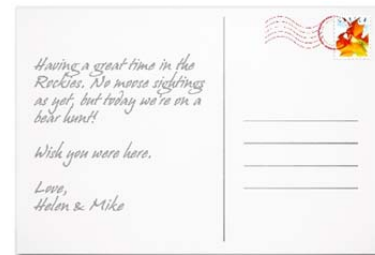 Having a great time in the
Rockies. No moose sightings
as yet, but today we're on a
bear hunt!
Wish you were here.
Love,
Helen & Mike